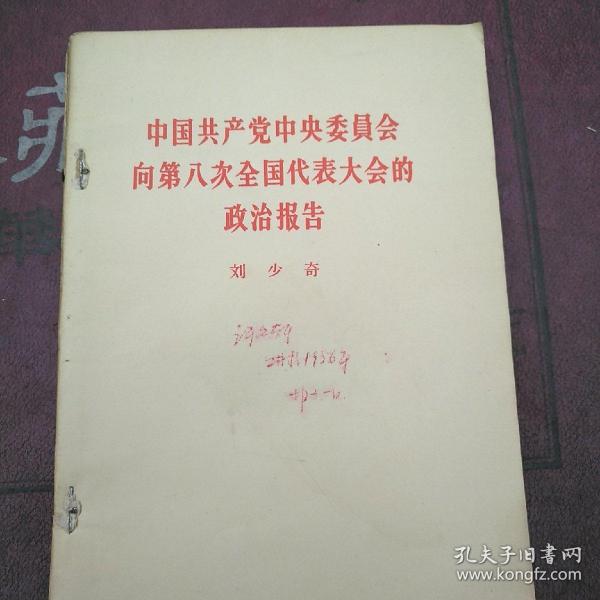 中国共产党中央委員会
向第八次全国代表大会的
政治报告
刘少奇
1956年
孔夫子旧书网
www.kongfz.com